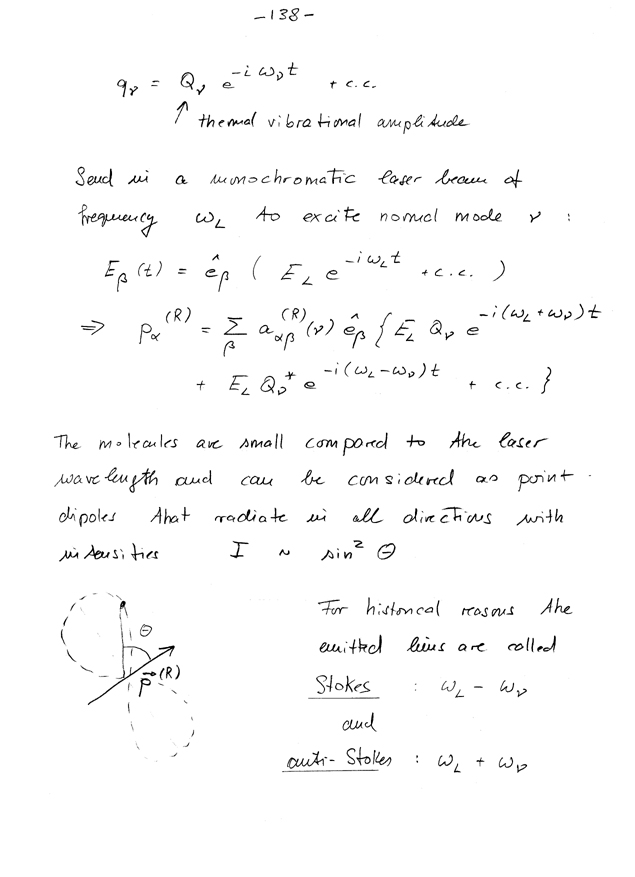 -138-
q_ν = Q_ν e^{-iω_ν t} + c.c.
↑ thermal vibrational amplitude
Send in a monochromatic laser beam of
frequency ω_L to excite normal mode ν :
E_β(t) = ê_β ( E_L e^{-iω_L t} + c.c. )
⇒ p_α^{(R)} = Σ_β a_{αβ}^{(R)}(ν) ê_β { E_L Q_ν e^{-i(ω_L+ω_ν)t}
+ E_L Q_ν^* e^{-i(ω_L-ω_ν)t} + c.c. }
The molecules are small compared to the laser
wavelength and can be considered as point
dipoles that radiate in all directions with
intensities I ~ sin² Θ
Θ
p⃗^{(R)}
For historical reasons the
emitted lines are called
Stokes : ω_L - ω_ν
and
anti-Stokes : ω_L + ω_ν